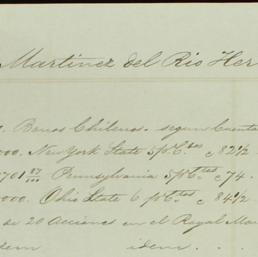 Martinez del Rio Her
Bonos Chilenos. segun Cuenta
000. New York State 5 p.Ctos c 82½
701 87/100 Pennsylvania 5 p.Ctos c 74.
000. Ohio State 6 p.Ctos c 84½
de 20 Acciones en el Royal Mai
idem idem . . .